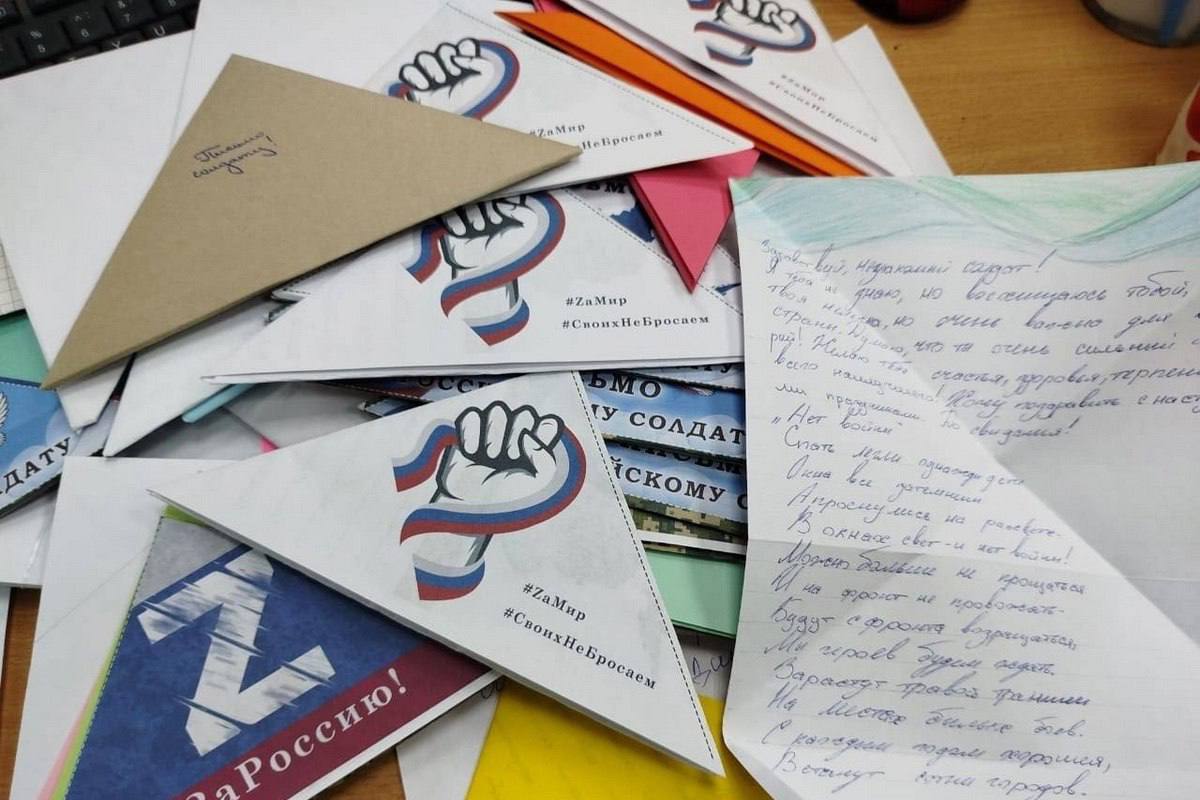 Письмо
солдату!
#ZaМир
#СвоихНеБросаем
#ZaМир
#СвоихНеБросаем
#ZaМир
#СвоихНеБросаем
СЬМО
МУ СОЛДАТУ
ЙСКОМУ С
ЛДАТУ
#ZaМир
#СвоихНеБросаем
Z
ZаРоссию!
Здравствуй, незнакомый солдат!
Я тебя не знаю, но восхищаюсь тобой,
твоя но очень важно для
страны. Думаю, что ты очень сильный
Желаю тебе счастья, здоровья, терпени
всего наилучшего! Хочу поздравить с наст
До свидания!
"Нет войны"
Спать легли однажды дети
Окна все затемнены
А проснулись на рассвете-
В окнах свет-и нет войны!
Можно больше не прощаться
И на фронт не провожать-
Будут с фронта возращаться,
Мы героев будем ждать.
Зарастут травой траншеи
На местах былых боев.
С каждым годом хорошея,
Встанут сотни городов.